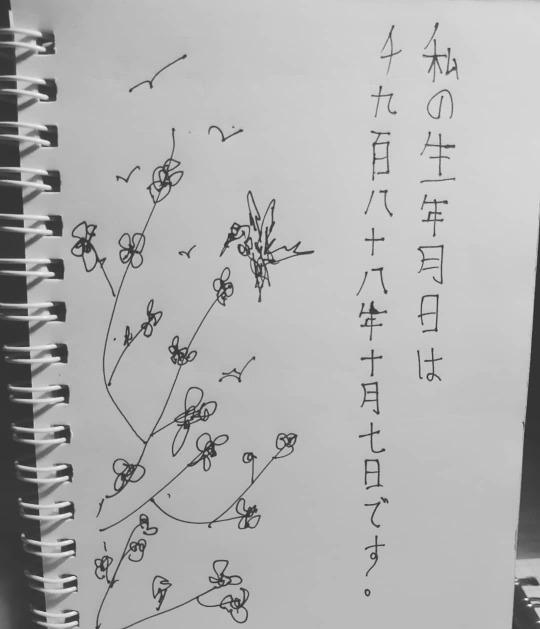 私の生年月日は
千九百八十八年十月七日です。